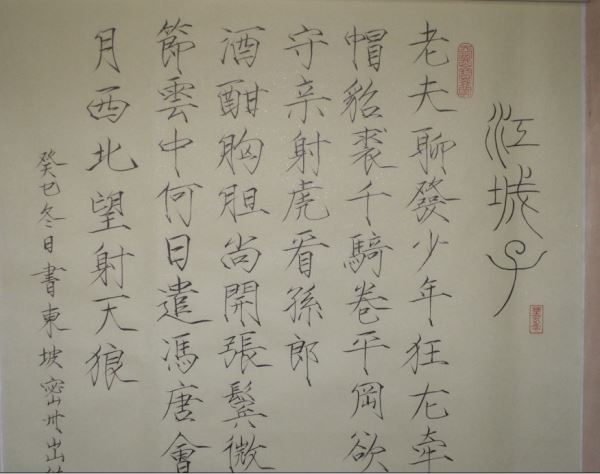 江城子
老夫聊發少年狂左牽
帽貂裘千騎卷平岡欲
守亲射虎看孫郎
酒酣胸胆尚開張鬢微
節雲中何日遣馮唐會
月西北望射天狼
癸巳冬日書東坡密州出